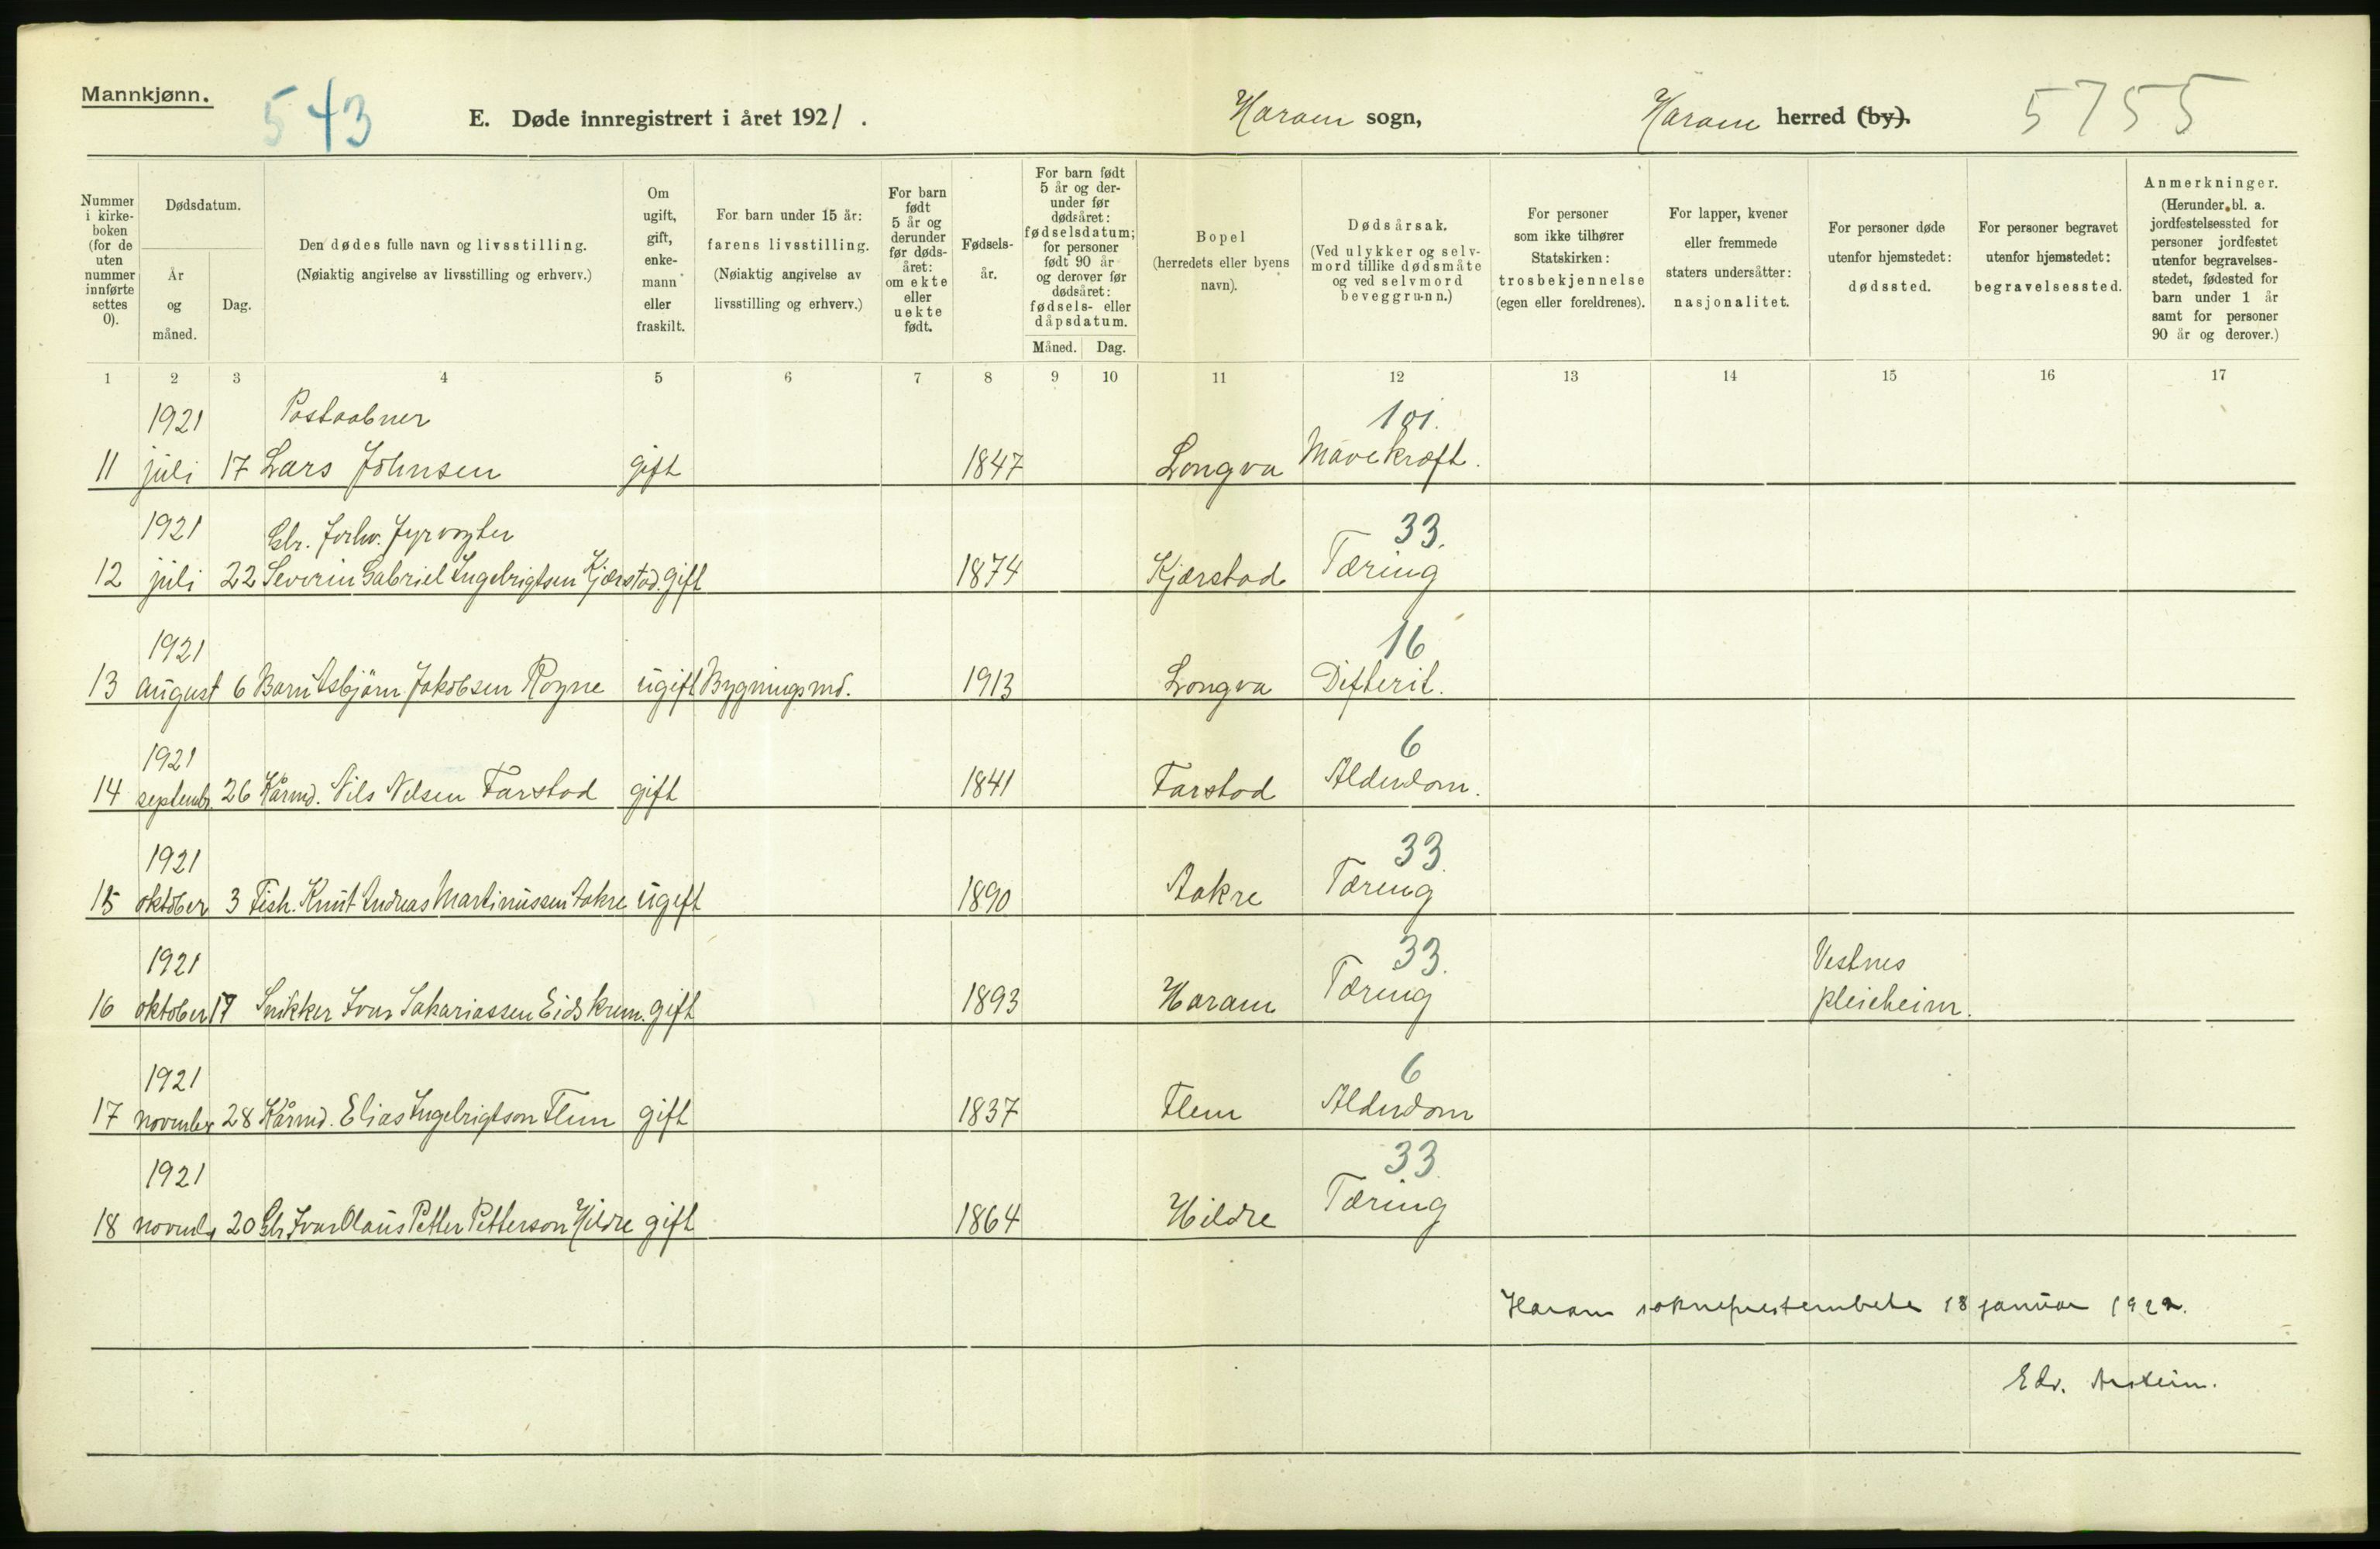 Mannkjønn.
543
E. Døde innregistrert i året 1921.
Haram sogn,
Haram herred (by).
5755
Nummer i kirkeboken (for de uten nummer innførte settes 0).
Dødsdatum.
År og måned.
Dag.
Den dødes fulle navn og livsstilling.
(Nøiaktig angivelse av livsstilling og erhverv.)
Om ugift, gift, enkemann eller fraskilt.
For barn under 15 år: farens livsstilling.
(Nøiaktig angivelse av livsstilling og erhverv.)
For barn født 5 år og derunder før dødsåret: om ekte eller uekte født.
Fødselsår.
For barn født 5 år og derunder før dødsåret: fødselsdatum; for personer født 90 år og derover før dødsåret: fødsels- eller dåpsdatum.
Måned.
Dag.
Bopel
(herredets eller byens navn).
Dødsårsak.
(Ved ulykker og selvmord tillike dødsmåte og ved selvmord beveggrunn.)
For personer som ikke tilhører Statskirken: trosbekjennelse (egen eller foreldrenes).
For lapper, kvener eller fremmede staters undersåtter: nasjonalitet.
For personer døde utenfor hjemstedet: dødssted.
For personer begravet utenfor hjemstedet: begravelsessted.
Anmerkninger.
(Herunder bl. a. jordfestelsessted for personer jordfestet utenfor begravelsesstedet, fødested for barn under 1 år samt for personer 90 år og derover.)
1 2 3 4 5 6 7 8 9 10 11 12 13 14 15 16 17
1921 Postaabner 101.
11 juli 17 Lars Johnsen gift 1847 Longva Mavekræft.
1921 Gbr. Forhv. Fyrvogter 33.
12 juli 22 Severin Gabriel Ingebrigtsen Kjærstad. gift 1874 Kjærstad Tæring
1921 16
13 august 6 Barn Asbjørn Jakobsen Rogne ugift Bygningsmd. 1913 Longva Difterit.
1921 6
14 septembr. 26 Kårmd. Nils Nilsen Farstad gift 1841 Farstad Alderdom.
1921 33.
15 oktober 3 Fisk. Knut Andreas Martinussen Aakre ugift 1890 Aakre Tæring
1921 33. Vestnes
16 oktober 17 Snikker Ivar Sakariassen Eidskrem. gift 1893 Haram Tæring pleieheim.
1921 6
17 november 28 Kårmd. Elias Ingebrigtson Flem gift 1837 Flem Alderdom
1921 33
18 novembr 20 Gbr Ivar Olaus Petter Petterson Hildre gift 1864 Hildre Tæring
Haram sokneprestembete 18 januar 1922.
Edv.